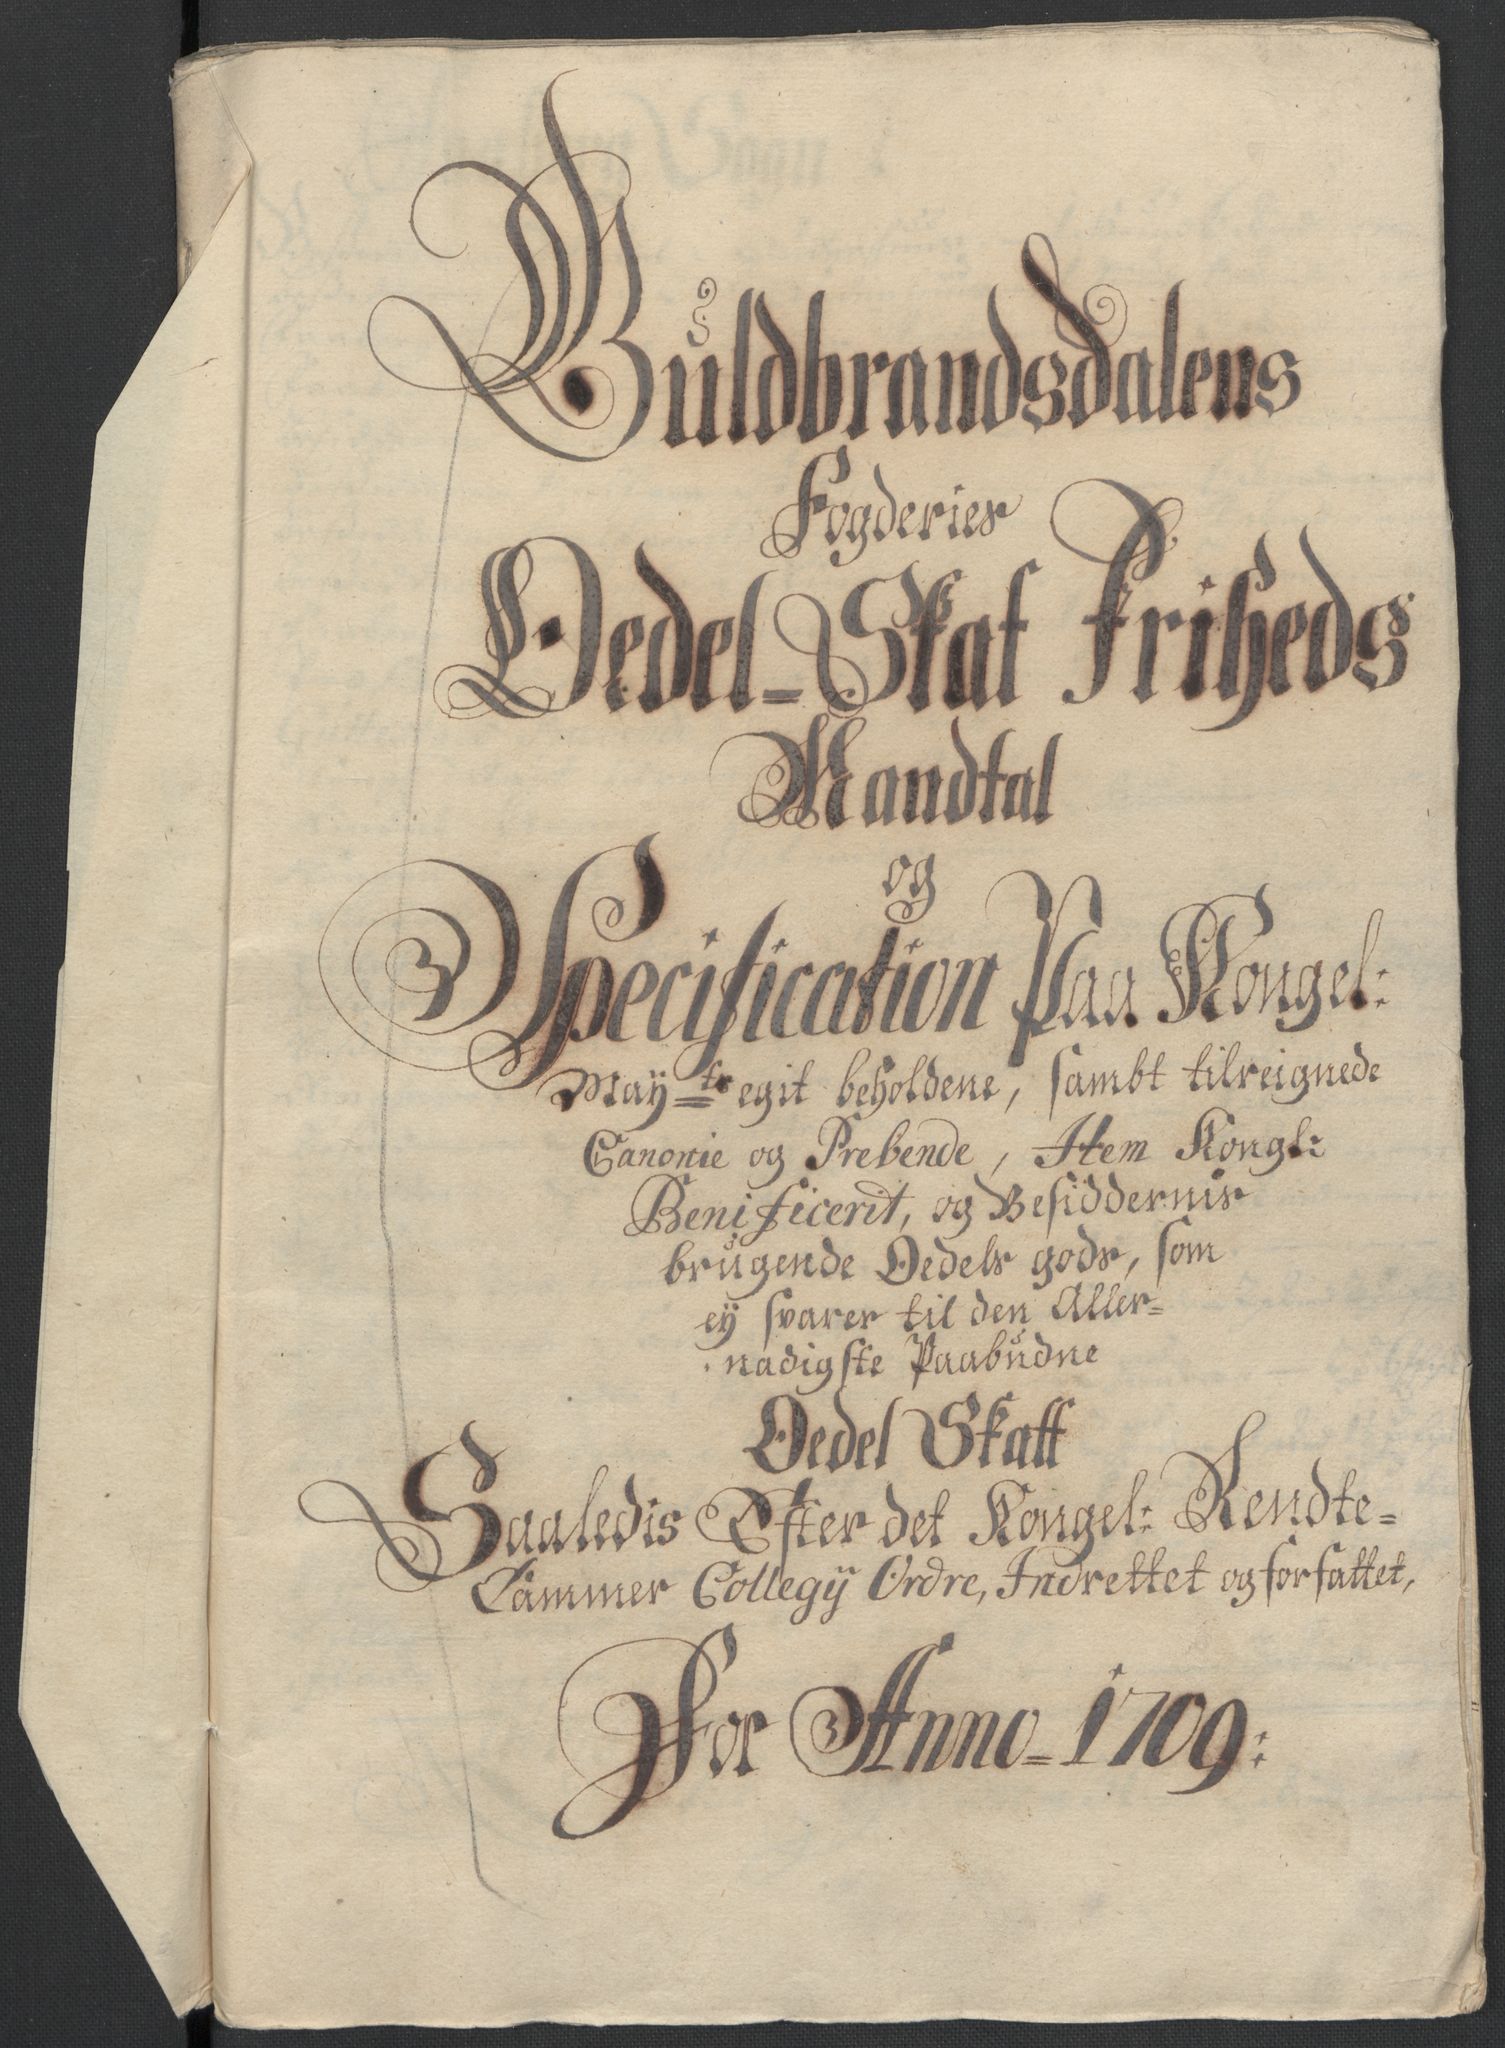 Guldbrandsdalens
Fogderies
Oedel=Skat Friheds
Mandtal
og
Specification Paa Kongel:
May=ts egit beholdene, sambt tilreignede
Canonie og Prebende, Item Kongl:
Benificerit, og Besiddernis
brugende Oedels gods, som
ey svarer til den Aller=
nadigste Paabudne
Oedel Skatt
Saaledis Efter det Kongel: Rendte=
Cammer Collegij Ordre, Indrettet og forfattet,
For Anno=1709: